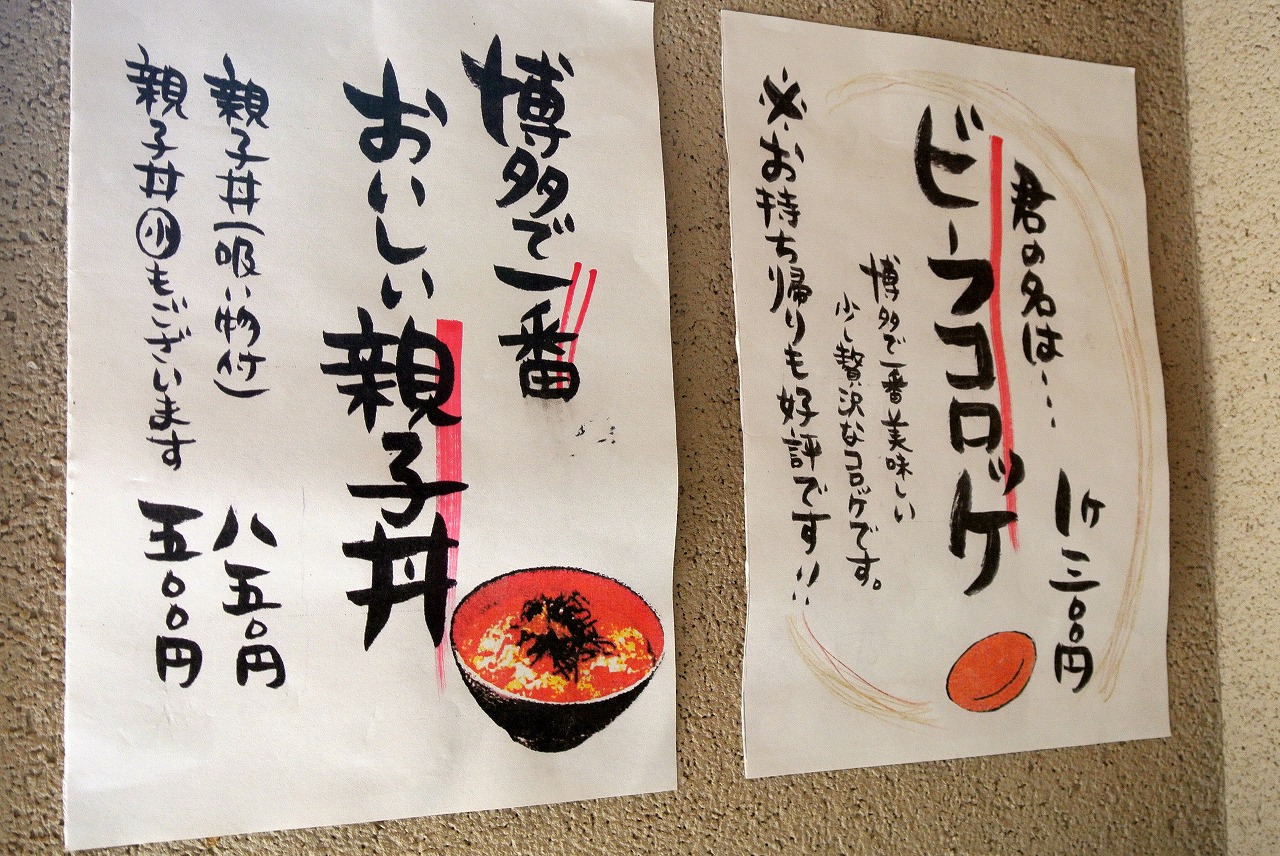 君の名は…
ビーフコロッケ
1ケ三〇〇円
博多で一番美味しい
少し贅沢なコロッケです。
※お持ち帰りも好評です!!
博多で一番
おいしい親子丼
親子丼(吸い物付) 八五〇円
親子丼㊙もございます 五〇〇円